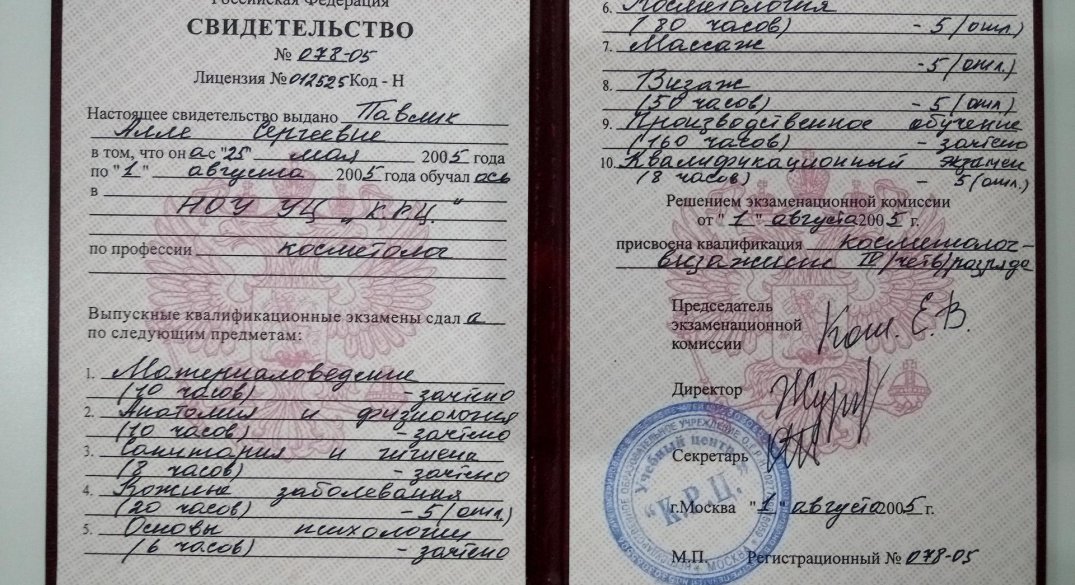 Российская Федерация
СВИДЕТЕЛЬСТВО
№ 078-05
Лицензия № 012525 Код - Н
Настоящее свидетельство выдано Павлик
Алле Сергеевне
в том, что он а с "25" мая 2005 года
по "1" августа 2005 года обучал ась
в
НОУ УЦ „К.Р.Ц."
по профессии косметолог
Выпускные квалификационные экзамены сдал а
по следующим предметам:
1. Материаловедение
(10 часов) - зачтено
2. Анатомия и физиология
(10 часов) - зачтено
3. Санитария и гигиена
(8 часов) - зачтено
4. Кожные заболевания
(20 часов) - 5 (отл.)
5. Основы психологии
(6 часов) - зачтено
6. Косметология
(80 часов) - 5 (отл.)
7. Массаж
- 5 (отл.)
8. Визаж
(50 часов) - 5 (отл.)
9. Производственное обучение
(160 часов) - зачтено
10. Квалификационный экзамен
(8 часов) - 5 (отл.)
Решением экзаменационной комиссии
от "1" августа 2005 г.
присвоена квалификация косметолог-
визажист IV (четв) разряда
Председатель
экзаменационной
комиссии
Кош. Е.В.
Директор
Секретарь
Учебный центр
"К.Р.Ц."
МОСКВА
г.Москва "1" августа 2005 г.
М.П. Регистрационный № 078-05